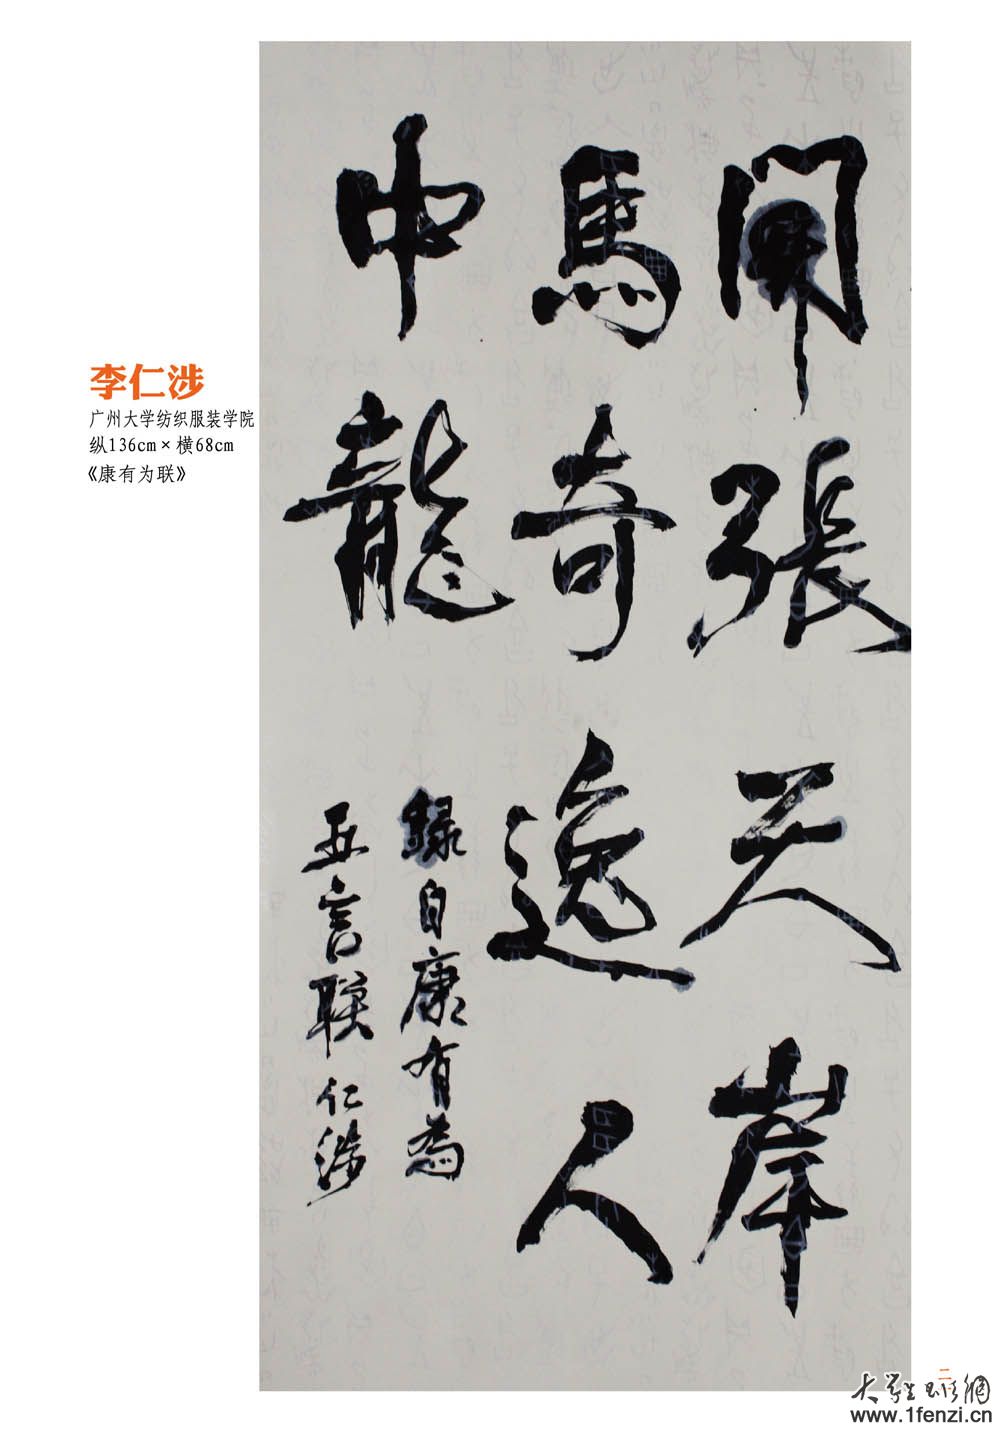 李仁涉
广州大学纺织服装学院
纵136cm×横68cm
《康有为联》
開張天岸
馬奇逸人
中龍
錄自康有為
五言聯仁涉
二
大學生书法網
www.1fenzi.cn